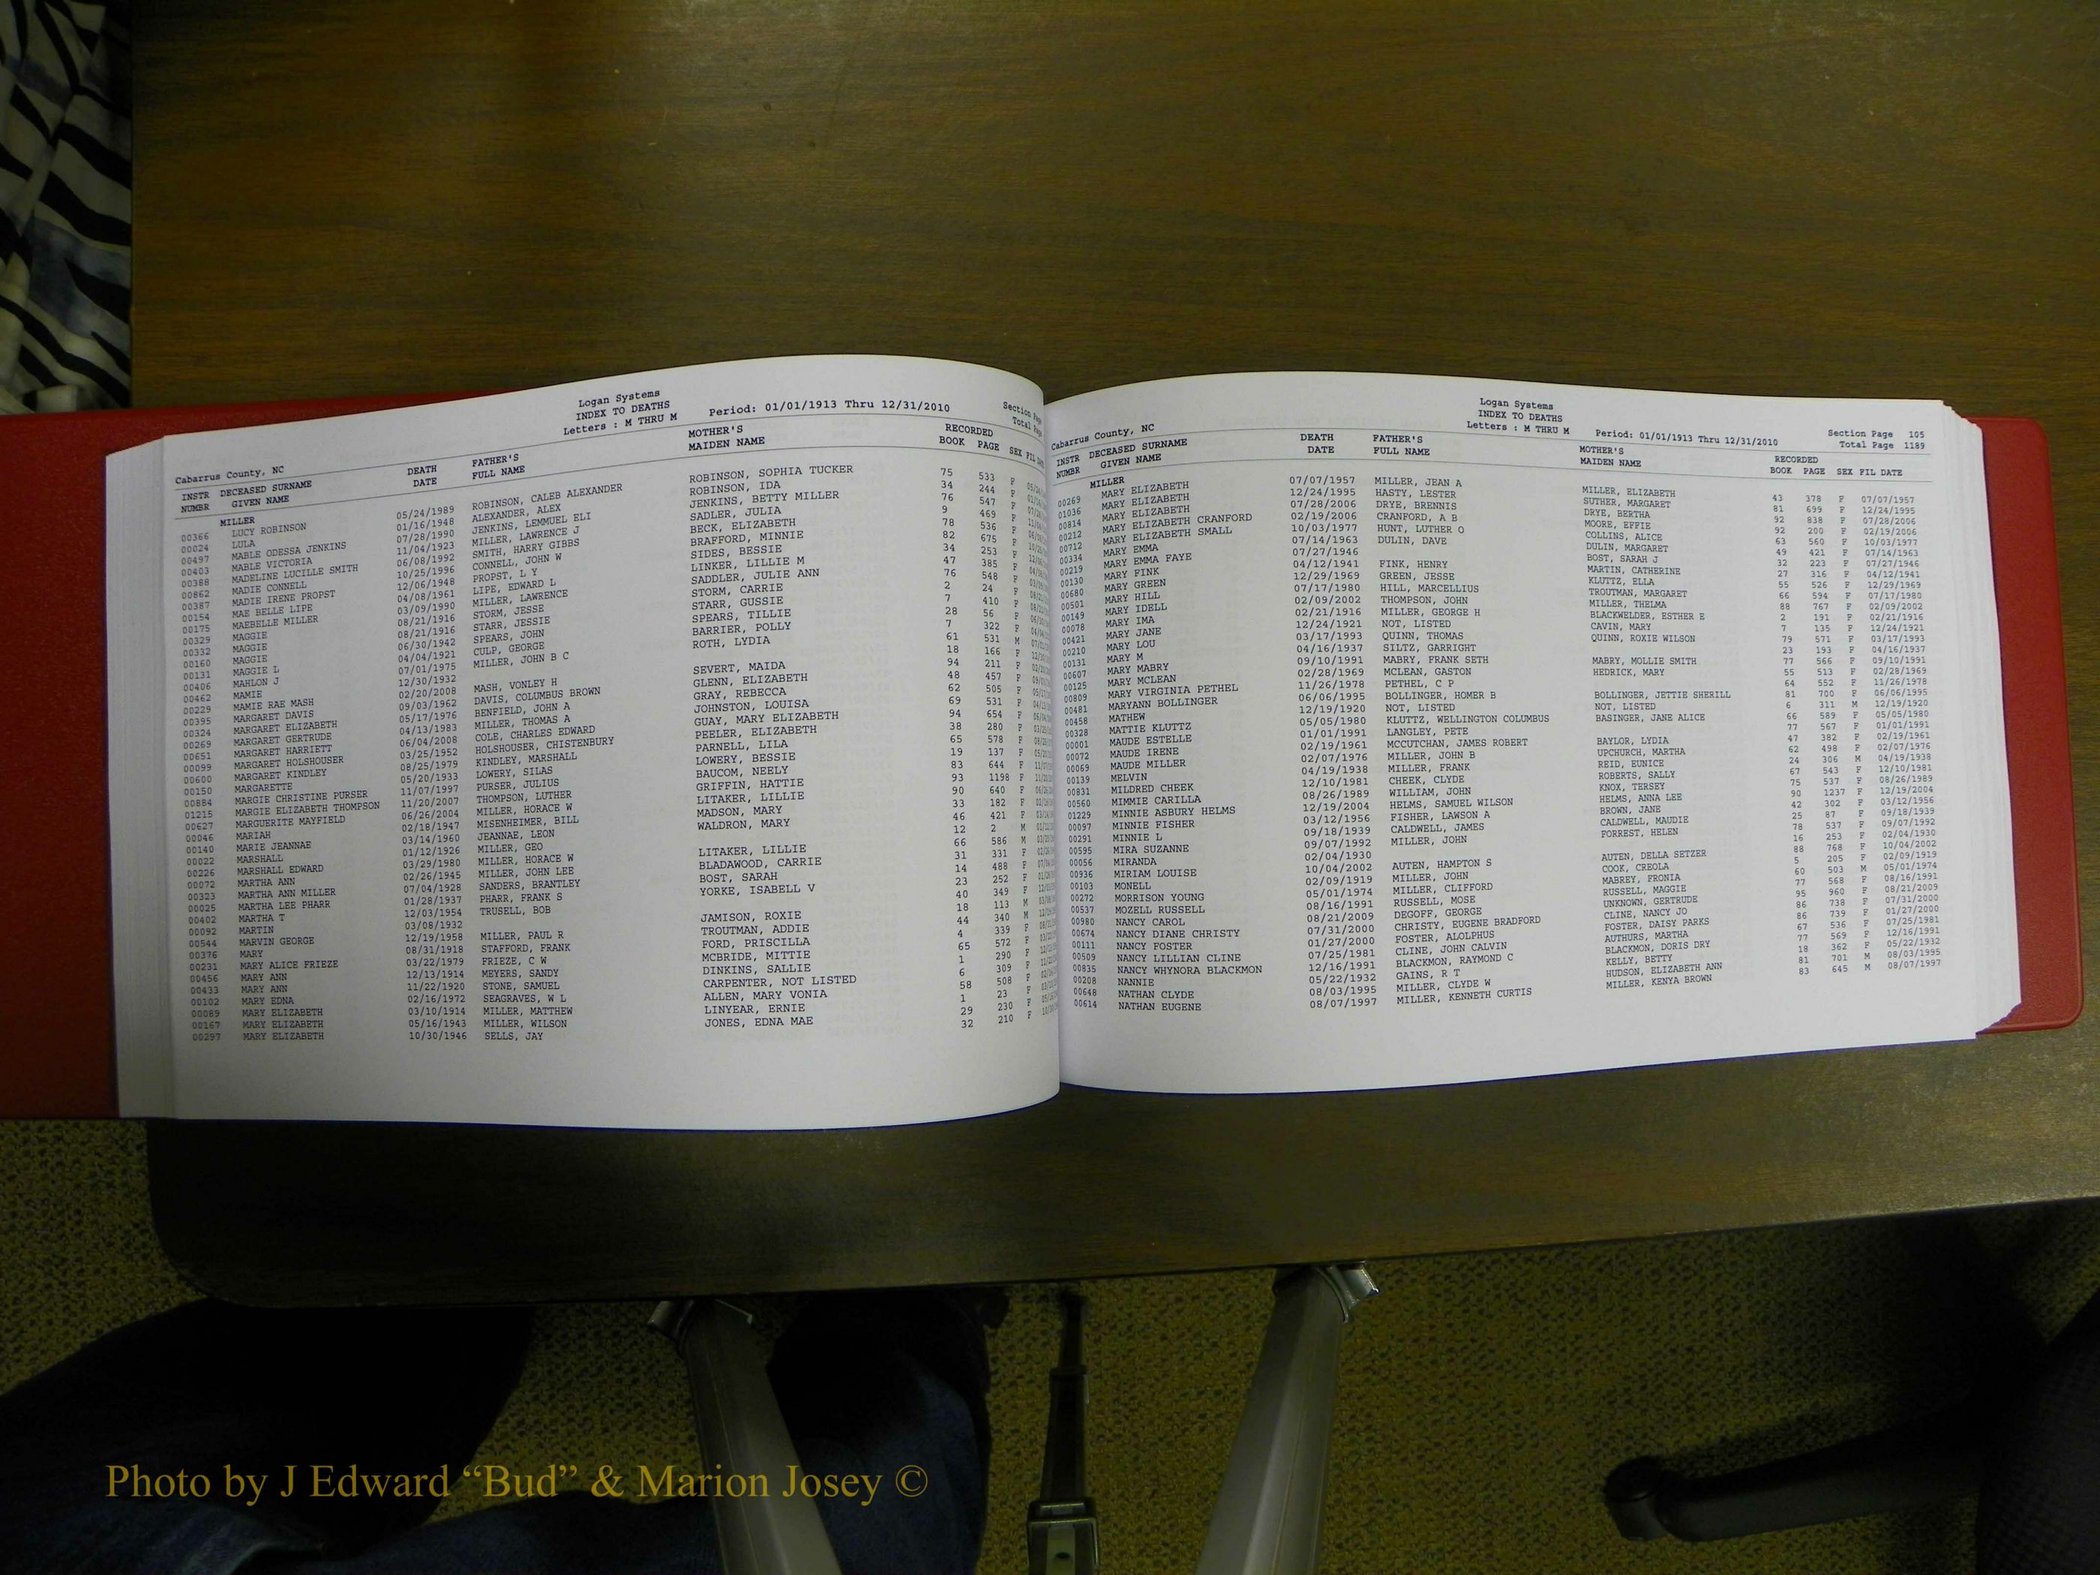 Logan Systems
INDEX TO DEATHS
Letters : M THRU M Period: 01/01/1913 Thru 12/31/2010
Section Page
Total Page
Cabarrus County, NC
INSTR NUMBR DECEASED SURNAME GIVEN NAME DEATH DATE FATHER'S FULL NAME MOTHER'S MAIDEN NAME RECORDED BOOK PAGE SEX FIL DATE
MILLER
00366 LUCY ROBINSON 05/24/1989 ROBINSON, CALEB ALEXANDER ROBINSON, SOPHIA TUCKER 75 533 F
00024 LULA 01/16/1948 ALEXANDER, ALEX ROBINSON, IDA 34 244 F
00497 MABLE ODESSA JENKINS 07/28/1990 JENKINS, LEMMUEL ELI JENKINS, BETTY MILLER 76 547 F
00403 MABLE VICTORIA 11/04/1923 MILLER, LAWRENCE J SADLER, JULIA 9 469 F
00388 MADELINE LUCILLE SMITH 06/08/1992 SMITH, HARRY GIBBS BECK, ELIZABETH 78 536 F
00862 MADIE CONNELL 10/25/1996 CONNELL, JOHN W BRAFFORD, MINNIE 82 675 F
00387 MADIE IRENE PROPST 12/06/1948 PROPST, L Y SIDES, BESSIE 34 253 F
00154 MAE BELLE LIPE 04/08/1961 LIPE, EDWARD L LINKER, LILLIE M 47 385 F
00175 MAEBELLE MILLER 03/09/1990 MILLER, LAWRENCE SADDLER, JULIE ANN 76 548 F
00329 MAGGIE 08/21/1916 STORM, JESSE STORM, CARRIE 2 24 F
00332 MAGGIE 08/21/1916 STARR, JESSIE STARR, GUSSIE 7 410 F
00160 MAGGIE 06/30/1942 SPEARS, JOHN SPEARS, TILLIE 28 56 F
00131 MAGGIE L 04/04/1921 CULP, GEORGE BARRIER, POLLY 7 322 F
00406 MAHLON J 07/01/1975 MILLER, JOHN B C ROTH, LYDIA 61 531 M
00462 MAMIE 12/30/1932 18 166 F
00229 MAMIE RAE MASH 02/20/2008 MASH, VONLEY H SEVERT, MAIDA 94 211 F
00395 MARGARET DAVIS 09/03/1962 DAVIS, COLUMBUS BROWN GLENN, ELIZABETH 48 457 F
00324 MARGARET ELIZABETH 05/17/1976 BENFIELD, JOHN A GRAY, REBECCA 62 505 F
00269 MARGARET GERTRUDE 04/13/1983 MILLER, THOMAS A JOHNSTON, LOUISA 69 531 F
00651 MARGARET HARRIETT 06/04/2008 COLE, CHARLES EDWARD GUAY, MARY ELIZABETH 94 654 F
00099 MARGARET HOLSHOUSER 03/25/1952 HOLSHOUSER, CHISTENBURY PEELER, ELIZABETH 38 280 F
00600 MARGARET KINDLEY 08/25/1979 KINDLEY, MARSHALL PARNELL, LILA 65 578 F
00150 MARGARETTE 05/20/1933 LOWERY, SILAS LOWERY, BESSIE 19 137 F
00884 MARGIE CHRISTINE PURSER 11/07/1997 PURSER, JULIUS BAUCOM, NEELY 83 644 F
01215 MARGIE ELIZABETH THOMPSON 11/20/2007 THOMPSON, LUTHER GRIFFIN, HATTIE 93 1198 F
00627 MARGUERITE MAYFIELD 06/26/2004 MILLER, HORACE W LITAKER, LILLIE 90 640 F
00046 MARIAH 02/18/1947 MISENHEIMER, BILL MADSON, MARY 33 182 F
00140 MARIE JEANNAE 03/14/1960 JEANNAE, LEON WALDRON, MARY 46 421 F
00022 MARSHALL 01/12/1926 MILLER, GEO 12 2 M
00226 MARSHALL EDWARD 03/29/1980 MILLER, HORACE W LITAKER, LILLIE 66 586 M
00072 MARTHA ANN 02/26/1945 MILLER, JOHN LEE BLADAWOOD, CARRIE 31 331 F
00323 MARTHA ANN MILLER 07/04/1928 SANDERS, BRANTLEY BOST, SARAH 14 488 F
00025 MARTHA LEE PHARR 01/28/1937 PHARR, FRANK S YORKE, ISABELL V 23 252 F
00402 MARTHA T 12/03/1954 TRUSELL, BOB 40 349 F
00092 MARTIN 03/08/1932 18 113 M
00544 MARVIN GEORGE 12/19/1958 MILLER, PAUL R JAMISON, ROXIE 44 340 M
00376 MARY 08/31/1918 STAFFORD, FRANK TROUTMAN, ADDIE 4 339 F
00231 MARY ALICE FRIEZE 03/22/1979 FRIEZE, C W FORD, PRISCILLA 65 572 F
00456 MARY ANN 12/13/1914 MEYERS, SANDY MCBRIDE, MITTIE 1 290 F
00433 MARY ANN 11/22/1920 STONE, SAMUEL DINKINS, SALLIE 6 309 F
00102 MARY EDNA 02/16/1972 SEAGRAVES, W L CARPENTER, NOT LISTED 58 508 F
00089 MARY ELIZABETH 03/10/1914 MILLER, MATTHEW ALLEN, MARY VONIA 1 23 F
00167 MARY ELIZABETH 05/16/1943 MILLER, WILSON LINYEAR, ERNIE 29 230 F
00297 MARY ELIZABETH 10/30/1946 SELLS, JAY JONES, EDNA MAE 32 210 F
Logan Systems
INDEX TO DEATHS
Letters : M THRU M Period: 01/01/1913 Thru 12/31/2010
Section Page 105
Total Page 1189
Cabarrus County, NC
INSTR NUMBR DECEASED SURNAME GIVEN NAME DEATH DATE FATHER'S FULL NAME MOTHER'S MAIDEN NAME RECORDED BOOK PAGE SEX FIL DATE
MILLER
00269 MARY ELIZABETH 07/07/1957 MILLER, JEAN A MILLER, ELIZABETH 43 378 F 07/07/1957
01036 MARY ELIZABETH 12/24/1995 HASTY, LESTER SUTHER, MARGARET 81 699 F 12/24/1995
00814 MARY ELIZABETH 07/28/2006 DRYE, BRENNIS DRYE, BERTHA 92 838 F 07/28/2006
00212 MARY ELIZABETH CRANFORD 02/19/2006 CRANFORD, A B MOORE, EFFIE 92 200 F 02/19/2006
00712 MARY ELIZABETH SMALL 10/03/1977 HUNT, LUTHER O COLLINS, ALICE 63 560 F 10/03/1977
00334 MARY EMMA 07/14/1963 DULIN, DAVE DULIN, MARGARET 49 421 F 07/14/1963
00219 MARY EMMA FAYE 07/27/1946 BOST, SARAH J 32 223 F 07/27/1946
00130 MARY FINK 04/12/1941 FINK, HENRY MARTIN, CATHERINE 27 316 F 04/12/1941
00680 MARY GREEN 12/29/1969 GREEN, JESSE KLUTTZ, ELLA 55 526 F 12/29/1969
00501 MARY HILL 07/17/1980 HILL, MARCELLIUS TROUTMAN, MARGARET 66 594 F 07/17/1980
00149 MARY IDELL 02/09/2002 THOMPSON, JOHN MILLER, THELMA 88 767 F 02/09/2002
00078 MARY IMA 02/21/1916 MILLER, GEORGE H BLACKWELDER, ESTHER E 2 191 F 02/21/1916
00421 MARY JANE 12/24/1921 NOT, LISTED CAVIN, MARY 7 135 F 12/24/1921
00210 MARY LOU 03/17/1993 QUINN, THOMAS QUINN, ROXIE WILSON 79 571 F 03/17/1993
00131 MARY M 04/16/1937 SILTZ, GARRIGHT 23 193 F 04/16/1937
00607 MARY MABRY 09/10/1991 MABRY, FRANK SETH MABRY, MOLLIE SMITH 77 566 F 09/10/1991
00125 MARY MCLEAN 02/28/1969 MCLEAN, GASTON HEDRICK, MARY 55 513 F 02/28/1969
00809 MARY VIRGINIA PETHEL 11/26/1978 PETHEL, C P 64 552 F 11/26/1978
00481 MARYANN BOLLINGER 06/06/1995 BOLLINGER, HOMER B BOLLINGER, JETTIE SHERILL 81 700 F 06/06/1995
00458 MATHEW 12/19/1920 NOT, LISTED NOT, LISTED 6 311 M 12/19/1920
00328 MATTIE KLUTTZ 05/05/1980 KLUTTZ, WELLINGTON COLUMBUS BASINGER, JANE ALICE 66 589 F 05/05/1980
00001 MAUDE ESTELLE 01/01/1991 LANGLEY, PETE 77 567 F 01/01/1991
00072 MAUDE IRENE 02/19/1961 MCCUTCHAN, JAMES ROBERT BAYLOR, LYDIA 47 382 F 02/19/1961
00069 MAUDE MILLER 02/07/1976 MILLER, JOHN B UPCHURCH, MARTHA 62 498 F 02/07/1976
00139 MELVIN 04/19/1938 MILLER, FRANK REID, EUNICE 24 306 M 04/19/1938
00831 MILDRED CHEEK 12/10/1981 CHEEK, CLYDE ROBERTS, SALLY 67 543 F 12/10/1981
00560 MIMMIE CARILLA 08/26/1989 WILLIAM, JOHN KNOX, TERSEY 75 537 F 08/26/1989
01229 MINNIE ASBURY HELMS 12/19/2004 HELMS, SAMUEL WILSON HELMS, ANNA LEE 90 1237 F 12/19/2004
00097 MINNIE FISHER 03/12/1956 FISHER, LAWSON A BROWN, JANE 42 302 F 03/12/1956
00291 MINNIE L 09/18/1939 CALDWELL, JAMES CALDWELL, MAUDIE 25 87 F 09/18/1939
00595 MIRA SUZANNE 09/07/1992 MILLER, JOHN FORREST, HELEN 78 537 F 09/07/1992
00056 MIRANDA 02/04/1930 16 253 F 02/04/1930
00936 MIRIAM LOUISE 10/04/2002 AUTEN, HAMPTON S AUTEN, DELLA SETZER 88 768 F 10/04/2002
00103 MONELL 02/09/1919 MILLER, JOHN COOK, CREOLA 5 205 F 02/09/1919
00272 MORRISON YOUNG 05/01/1974 MILLER, CLIFFORD MABREY, FRONIA 60 503 M 05/01/1974
00537 MOZELL RUSSELL 08/16/1991 RUSSELL, MOSE RUSSELL, MAGGIE 77 568 F 08/16/1991
00980 NANCY CAROL 08/21/2009 DEGOFF, GEORGE UNKNOWN, GERTRUDE 95 960 F 08/21/2009
00674 NANCY DIANE CHRISTY 07/31/2000 CHRISTY, EUGENE BRADFORD CLINE, NANCY JO 86 738 F 07/31/2000
00111 NANCY FOSTER 01/27/2000 FOSTER, ALOLPHUS FOSTER, DAISY PARKS 86 739 F 01/27/2000
00509 NANCY LILLIAN CLINE 07/25/1981 CLINE, JOHN CALVIN AUTHURS, MARTHA 67 536 F 07/25/1981
00835 NANCY WHYNORA BLACKMON 12/16/1991 BLACKMON, RAYMOND C BLACKMON, DORIS DRY 77 569 F 12/16/1991
00208 NANNIE 05/22/1932 GAINS, R T KELLY, BETTY 18 362 F 05/22/1932
00648 NATHAN CLYDE 08/03/1995 MILLER, CLYDE W HUDSON, ELIZABETH ANN 81 701 M 08/03/1995
00614 NATHAN EUGENE 08/07/1997 MILLER, KENNETH CURTIS MILLER, KENYA BROWN 83 645 M 08/07/1997
Photo by J Edward “Bud” & Marion Josey ©